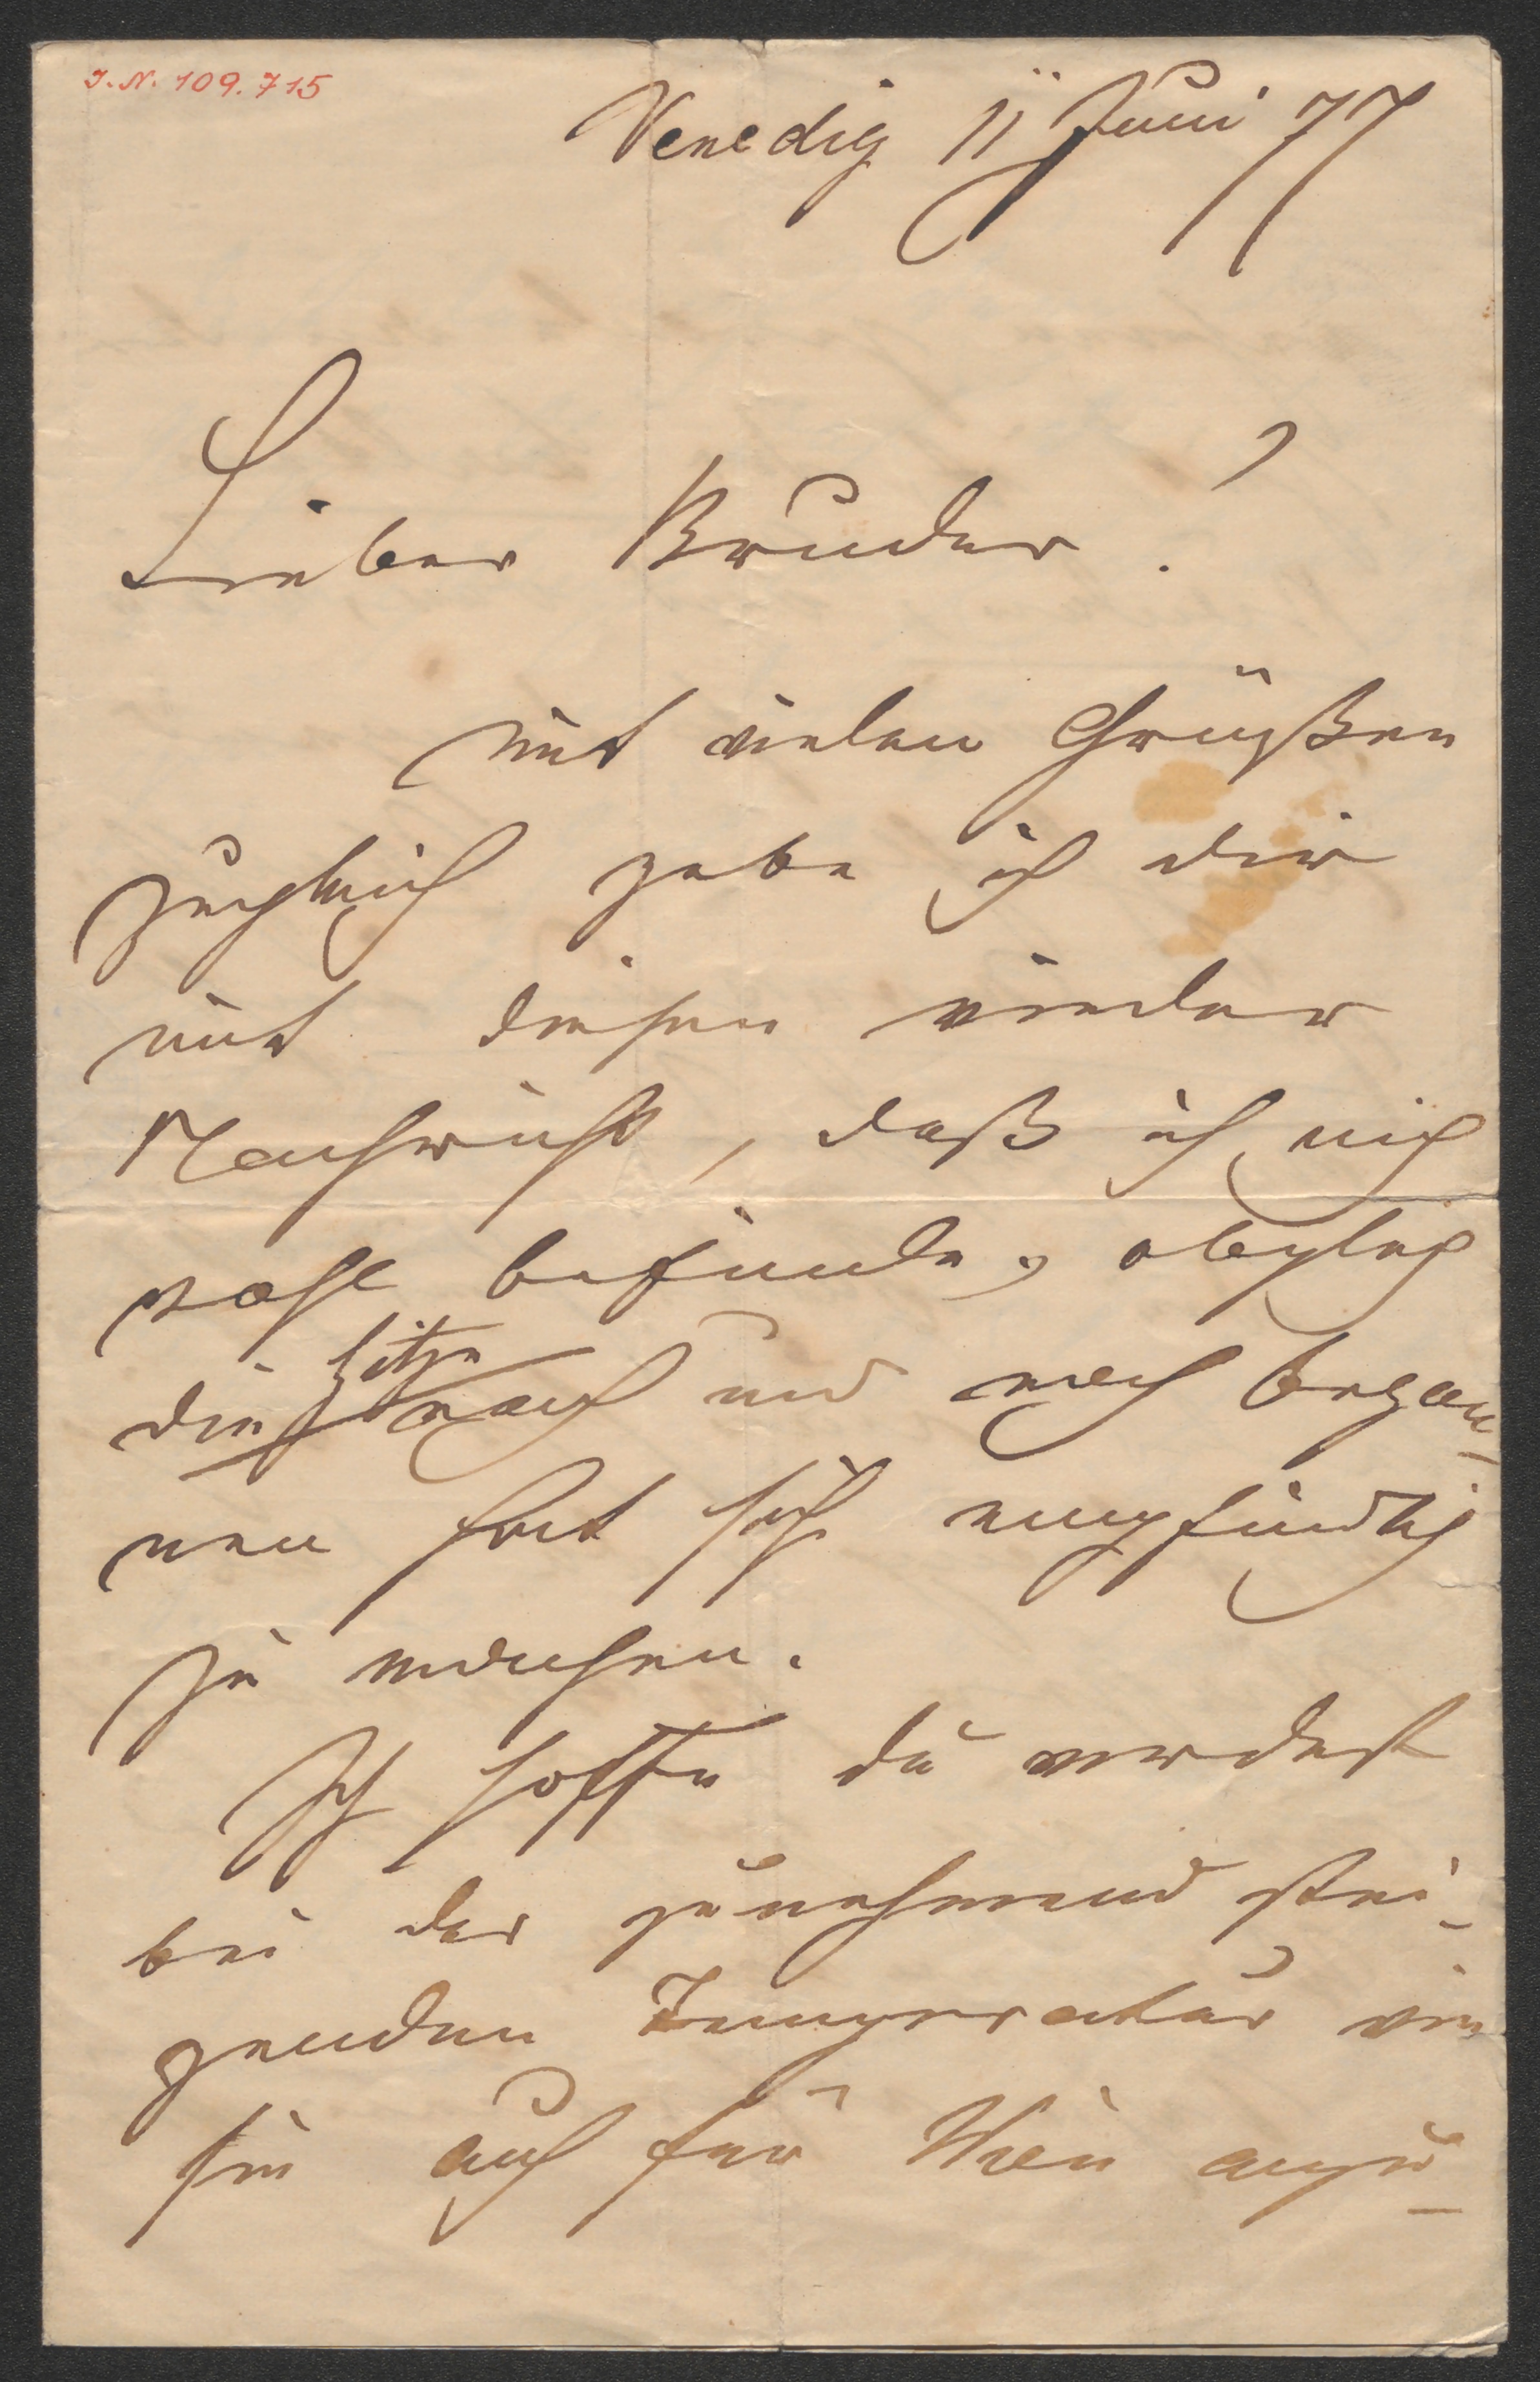 I.N. 109.715
Venedig 11 Juni 77
Lieber Bruder!
Mit vielen Grüßen
zugleich gebe ich dir
mit diesen wieder
Nachricht, daß ich mich
wohl befinde, obgleich
die Hitze nach und nach begon-
nen hat sich empfindlich
zu machen.
Ich hoffe du werdest
bei der zunehmend stei-
genden Temperatur wie
sie auch für Wien anzu-